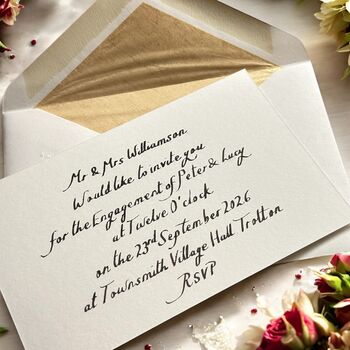 Mr & Mrs Williamson
Would like to invite you
for the Engagement of Peter & Lucy
at Twelve O'clock
on the 23rd September 2026
at Townsmith Village Hall Trotton
RSVP